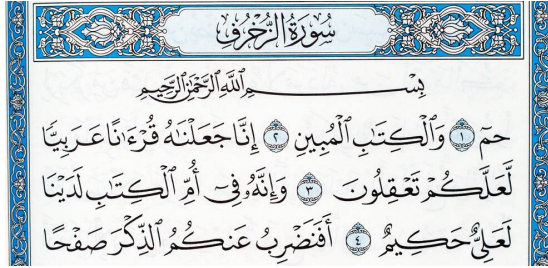 سُورَةُ الزُّخْرُفِ
بِسْمِ اللَّهِ الرَّحْمَٰنِ الرَّحِيمِ
حمٓ ١ وَٱلْكِتَٰبِ ٱلْمُبِينِ ٢ إِنَّا جَعَلْنَٰهُ قُرْءَٰنًا عَرَبِيًّا
لَّعَلَّكُمْ تَعْقِلُونَ ٣ وَإِنَّهُۥ فِىٓ أُمِّ ٱلْكِتَٰبِ لَدَيْنَا
لَعَلِىٌّ حَكِيمٌ ٤ أَفَنَضْرِبُ عَنكُمُ ٱلذِّكْرَ صَفْحًا